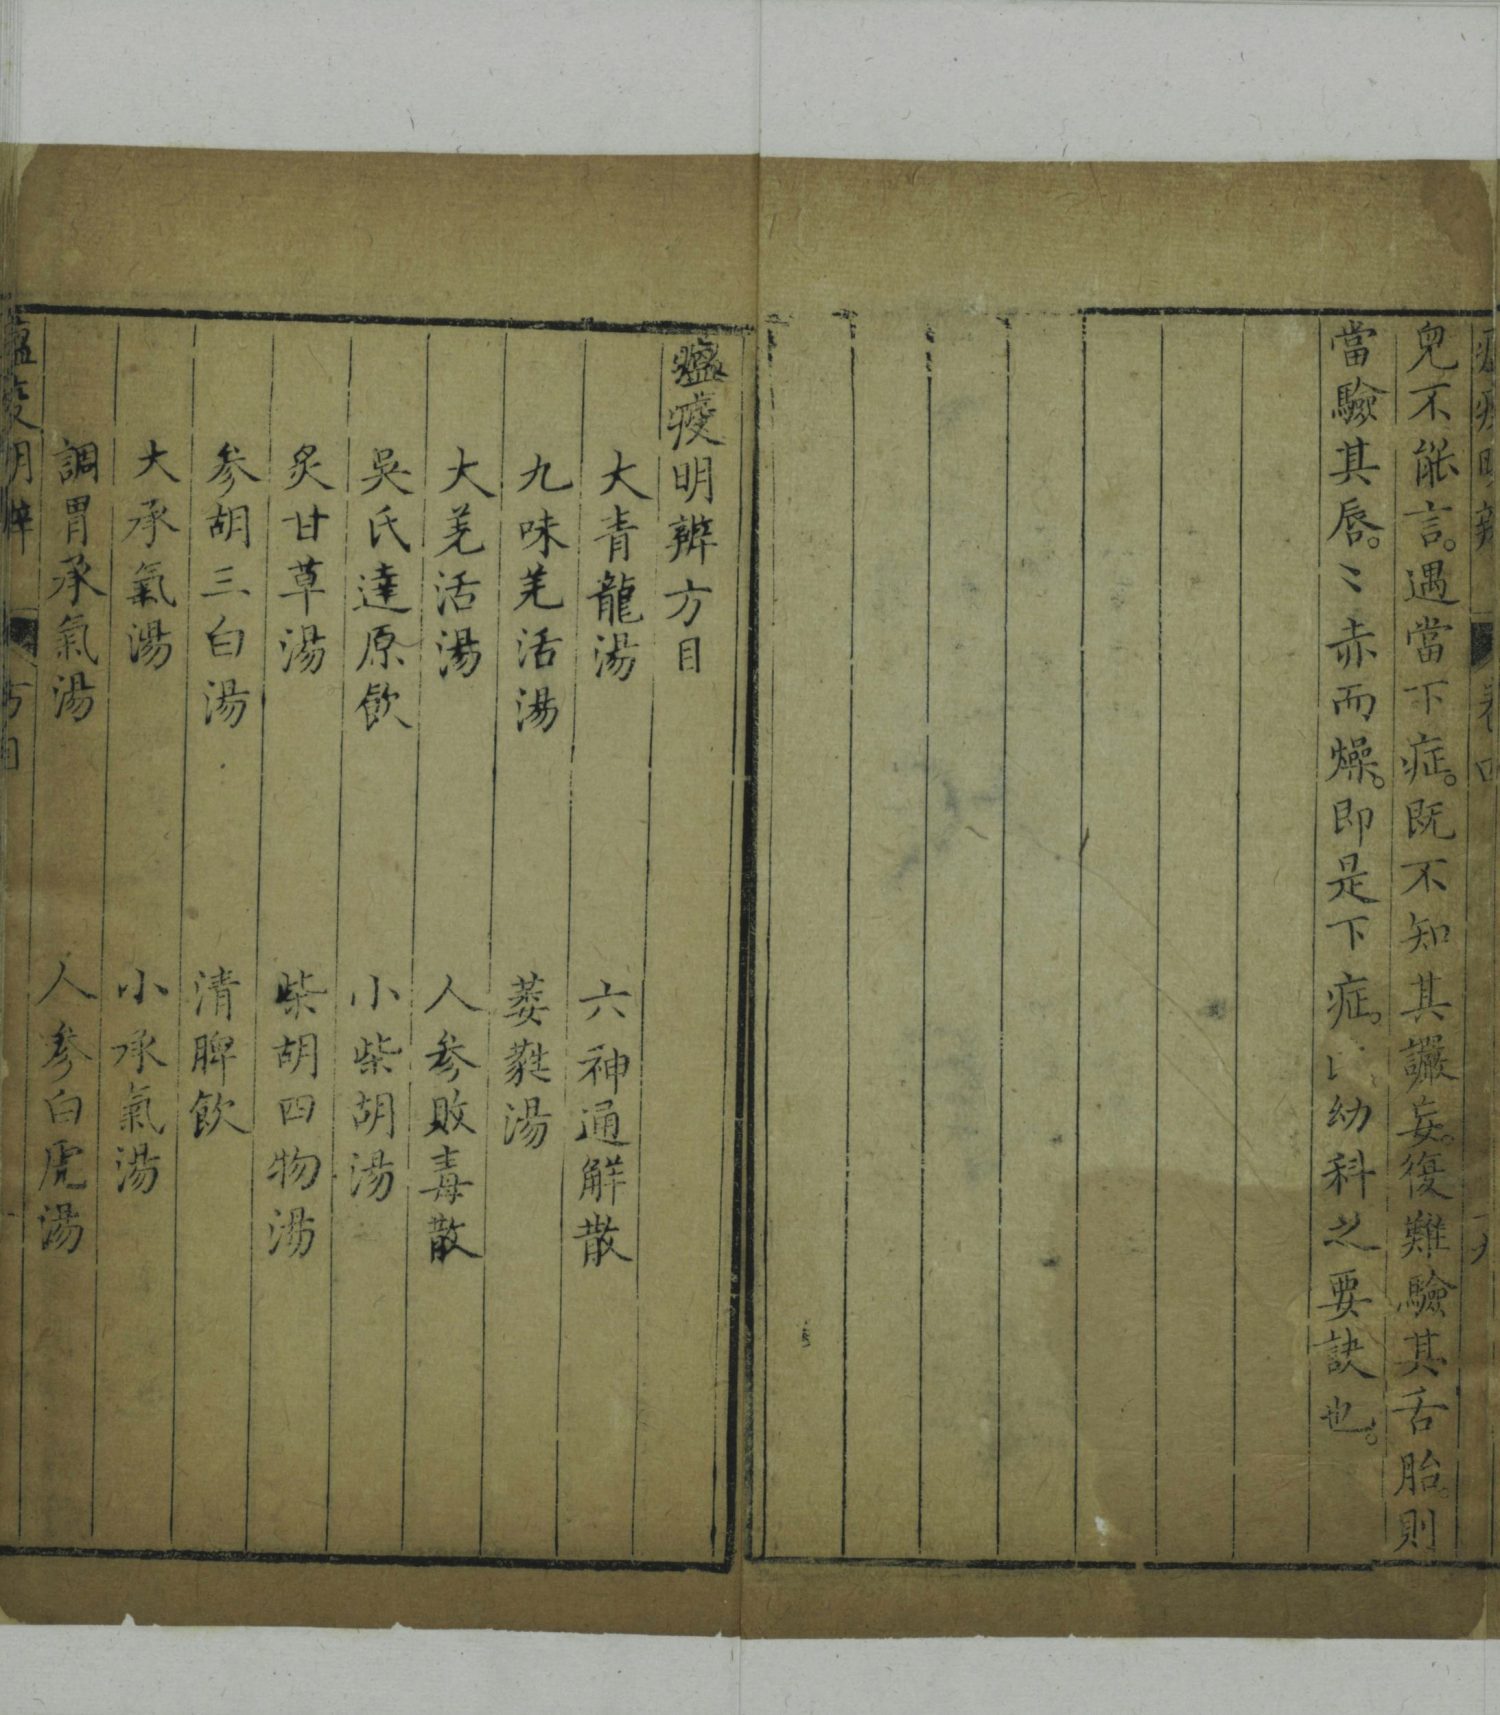 兒不能言。遇當下症。既不知其讝妄。復難驗其舌胎。則
當驗其唇。〻赤而燥。即是下症。幼科之要訣也。
瘟疫明辨方目
大青龍湯 六神通解散
九味羌活湯 葳蕤湯
大羌活湯 人參敗毒散
吳氏達原飲 小柴胡湯
炙甘草湯 柴胡四物湯
參胡三白湯 清脾飲
大承氣湯 小承氣湯
調胃承氣湯 人參白虎湯
瘟疫明辨 方目